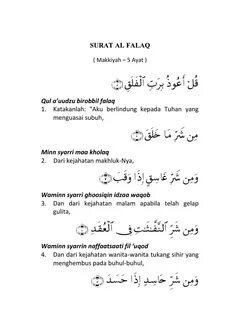 SURAT AL FALAQ
( Makkiyah – 5 Ayat )
قُلْ أَعُوذُ بِرَبِّ ٱلْفَلَقِ ۝١
Qul a'uudzu birobbil falaq
1. Katakanlah: "Aku berlindung kepada Tuhan yang
menguasai subuh,
مِن شَرِّ مَا خَلَقَ ۝٢
Minn syarri maa kholaq
2. Dari kejahatan makhluk-Nya,
وَمِن شَرِّ غَاسِقٍ إِذَا وَقَبَ ۝٣
Waminn syarri ghoosiqin idzaa waqob
3. Dan dari kejahatan malam apabila telah gelap
gulita,
وَمِن شَرِّ ٱلنَّفَّـٰثَـٰتِ فِى ٱلْعُقَدِ ۝٤
Waminn syarrin naffaatsaati fil 'uqod
4. Dan dari kejahatan wanita-wanita tukang sihir yang
menghembus pada buhul-buhul,
وَمِن شَرِّ حَاسِدٍ إِذَا حَسَدَ ۝٥